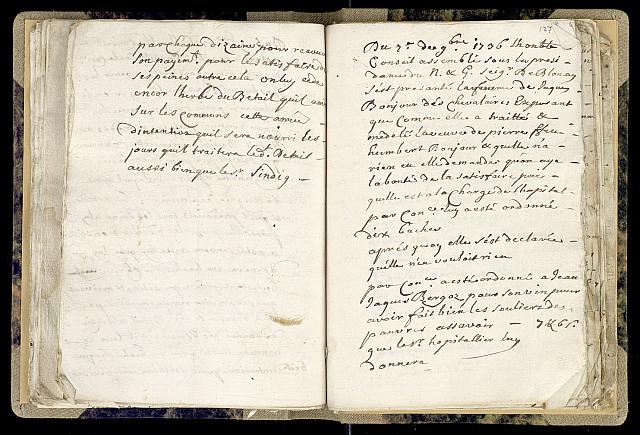 par chaque dizaine pour recevoir
son payent. pour le satisfaire de
ses peines outre cela on luy cede
encor lherbe du Betail quil aura
sur les communs cette année
dintention quil sera nourri les
jours quil traitera led. Betail
aussi bien que le sr. Sindiq
127
Du 7e. de 9bre 1736 Lhonble
Conseil assemblé sous la presi
dance du N. & G. Seigr. De Blonay
Sest presanté la femme de Jaques
Bonjour dés Chevalaires Exposant
que comme elle a traitté &
medelé la veuve de pierre
humbert Bonjour & quelle na
rien eu elle demande quon aye
la bonté de la satisfaire puis
quelle est a la charge de lhopital
par Conce. luy a esté ordonné
dix baches
aprés quoy elle sést declarée
quélle nen vouloit rien
par Conce. a esté ordonné a Jean
Jaques Bergoz pour son vin pour
avoir fait bien les souliers des
pauvres assavoir 7 ℔ 6 s.
que le sr. hopitallier luy
donnera